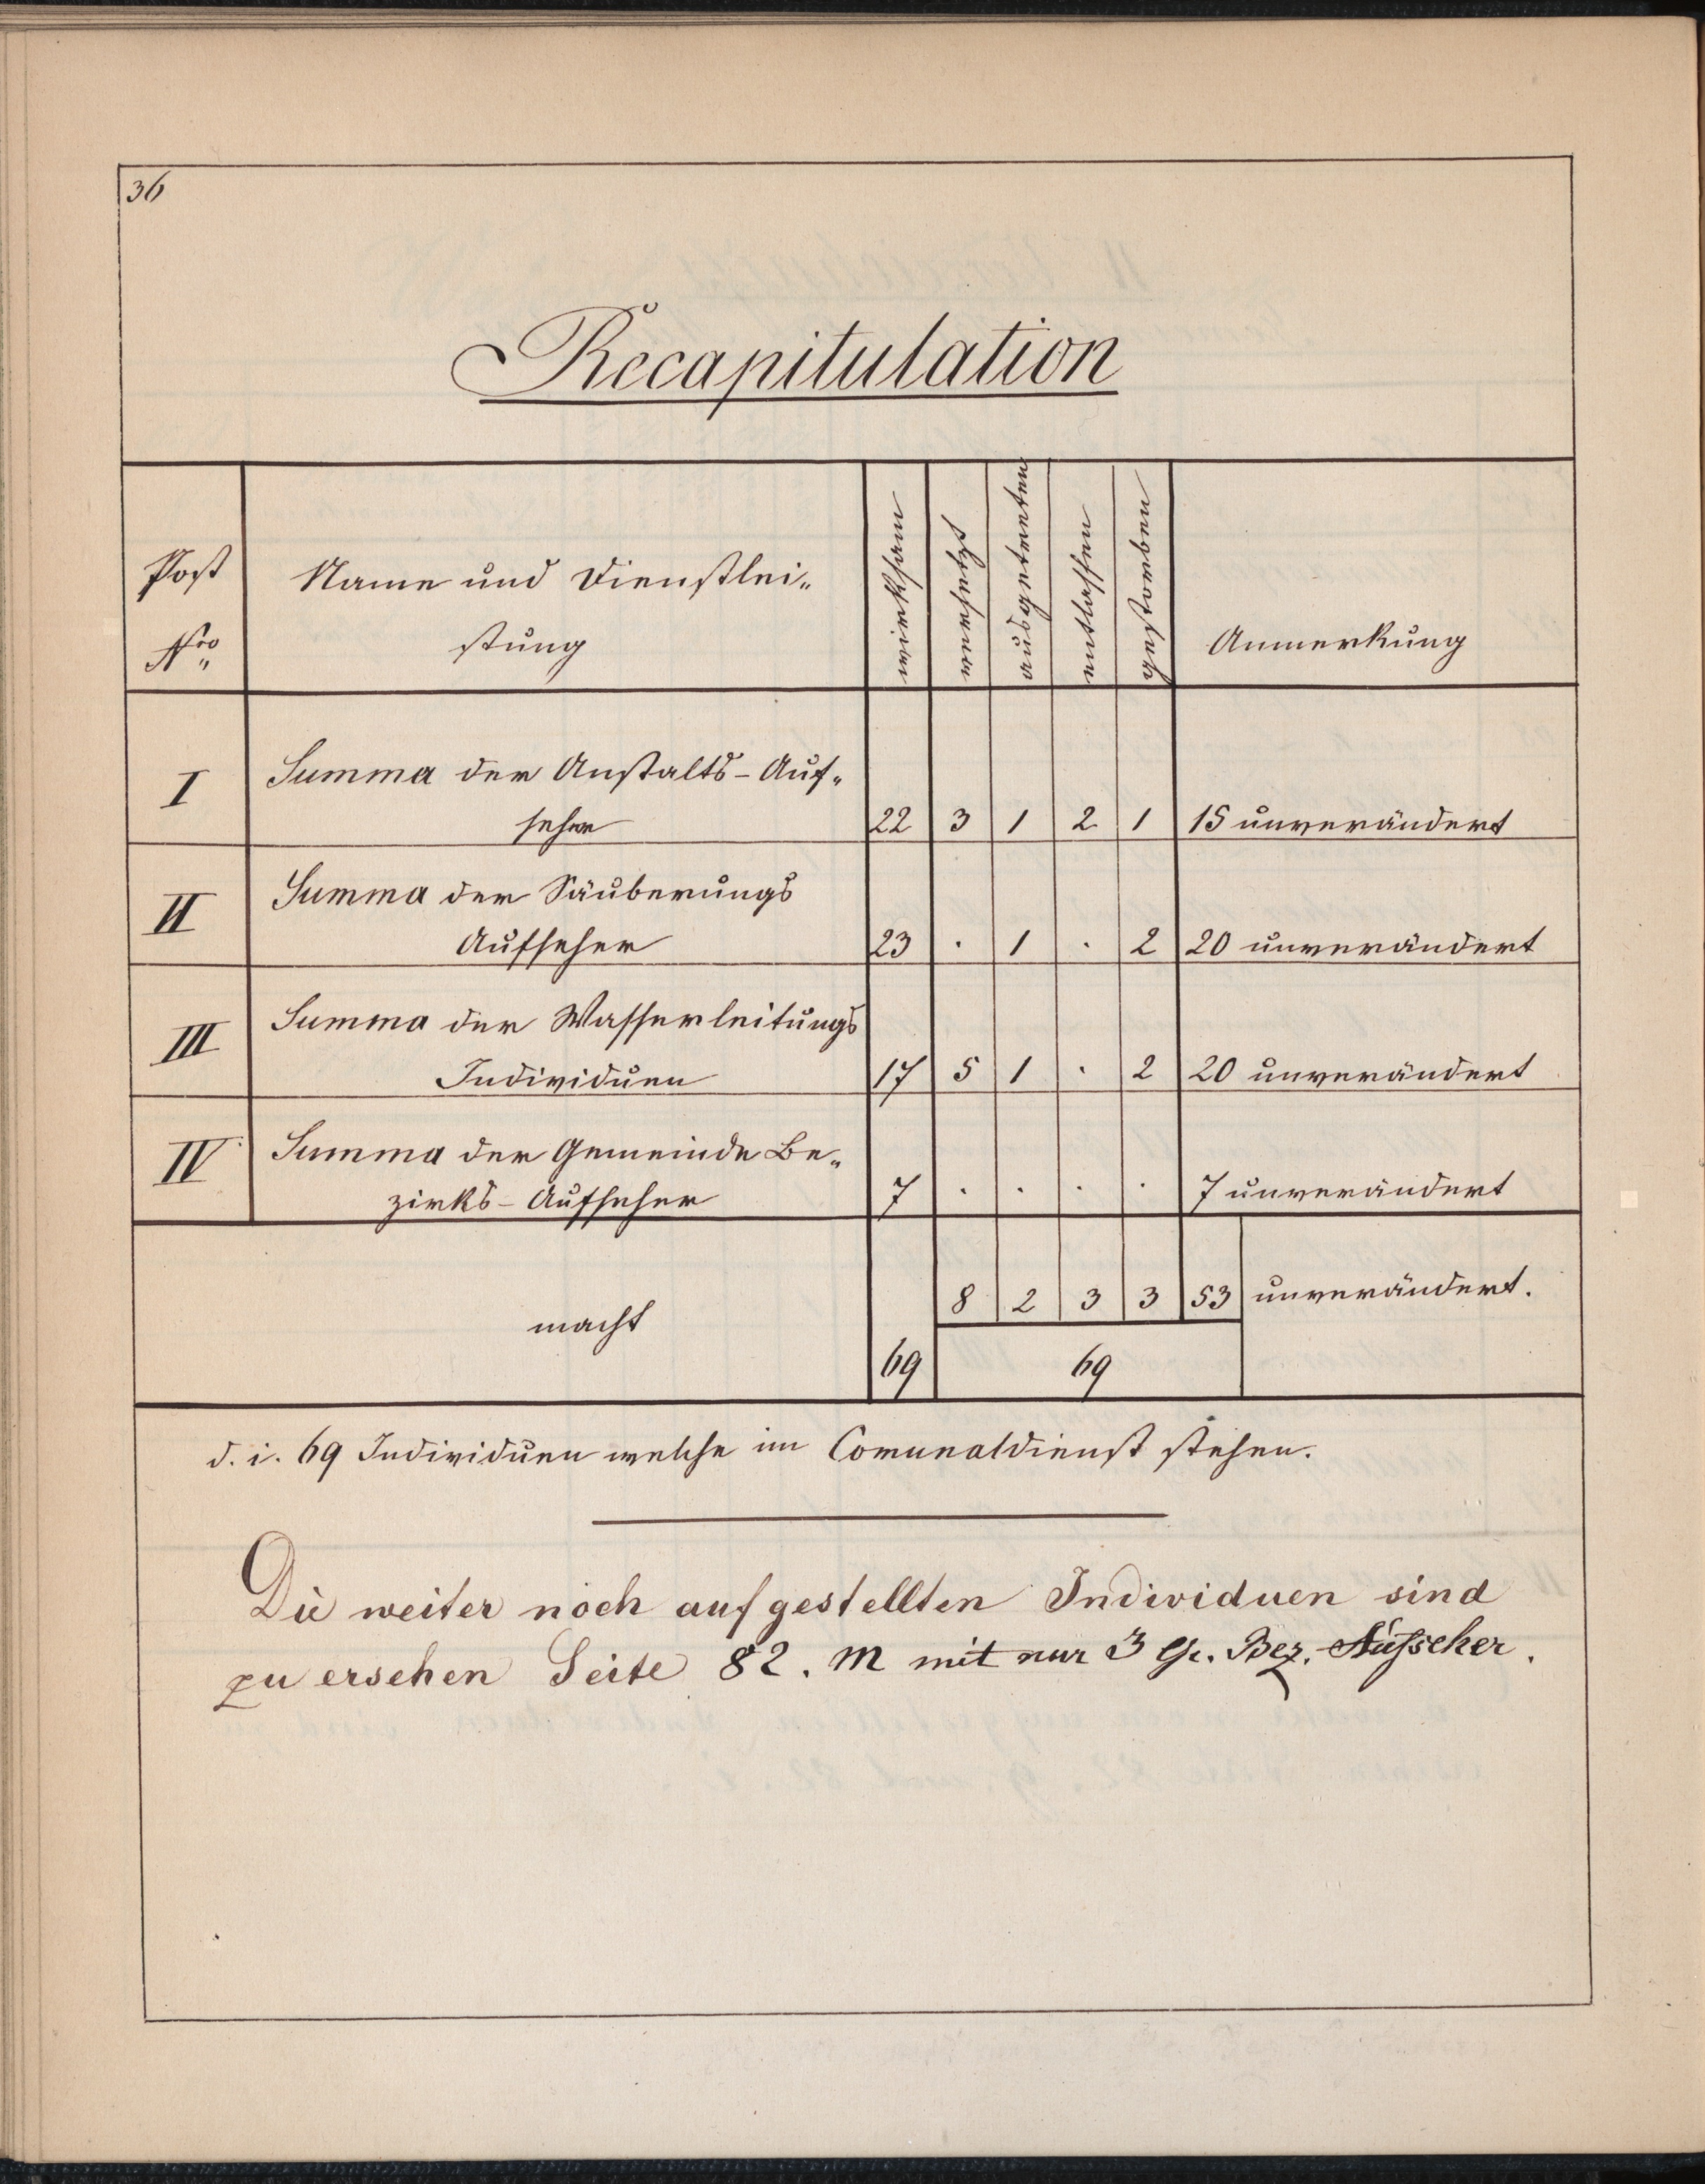 36
Recapitulation
Post
Nro
Name und Dienstlei-
stung
wirksam
versetzt
ausgetreten
entlassen
gestorben
Anmerkung
I
Summa der Anstalts-Auf-
seher
22 3 1 2 1 15 unverändert
II
Summa der Säuberungs
Aufseher
23 . 1 . 2 20 unverändert
III
Summa der Wasserleitungs
Individuen
17 5 1 . 2 20 unverändert
IV
Summa der Gemeinde Be-
zirks-Aufseher
7 . . . . 7 unverändert
macht
8 2 3 3 53 unverändert.
69 69
d. i. 69 Individuen welche im Comunaldienst stehen.
Die weiter noch aufgestellten Individuen sind
zu ersehen Seite 82. m mit nur 3 G. Bez. Aufseher.